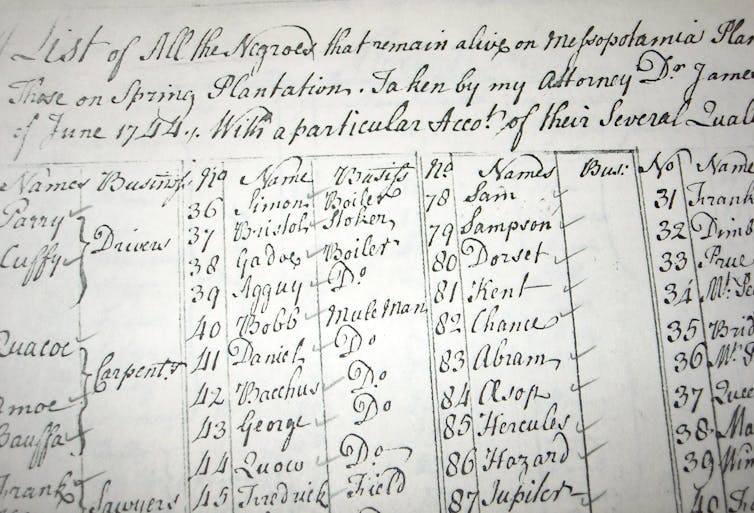 A List of All the Negroes that remain alive on Messopotamia Plan
Those on Spring Plantation. Taken by my Attorney Dr James
of June 1744. With a particular Accot. of their Several Quall
Names Businss. No Name Busiss No Names Bus: No Name
Parry Drivers 36 Simon Boiler 78 Sam 31 Frank
Cuffy 37 Bristol Stoker 79 Sampson 32 Dimb
38 Boiler 80 Dorset 33 Prue
39 Agguy Do 81 Kent 34
40 Bobb Mule Man 82 Chance 35 Brid
Quacoe Carpentrs 41 Daniel Do 83 Abram 36
42 Bacchus Do 84 Æsop 37 Quee
Bauffa 43 George Do 85 Hercules 38 Ma
44 Quow Do 86 Hazard 39 Win
Frank Sawyers 45 Fredrick Field 87 Jupiter 40